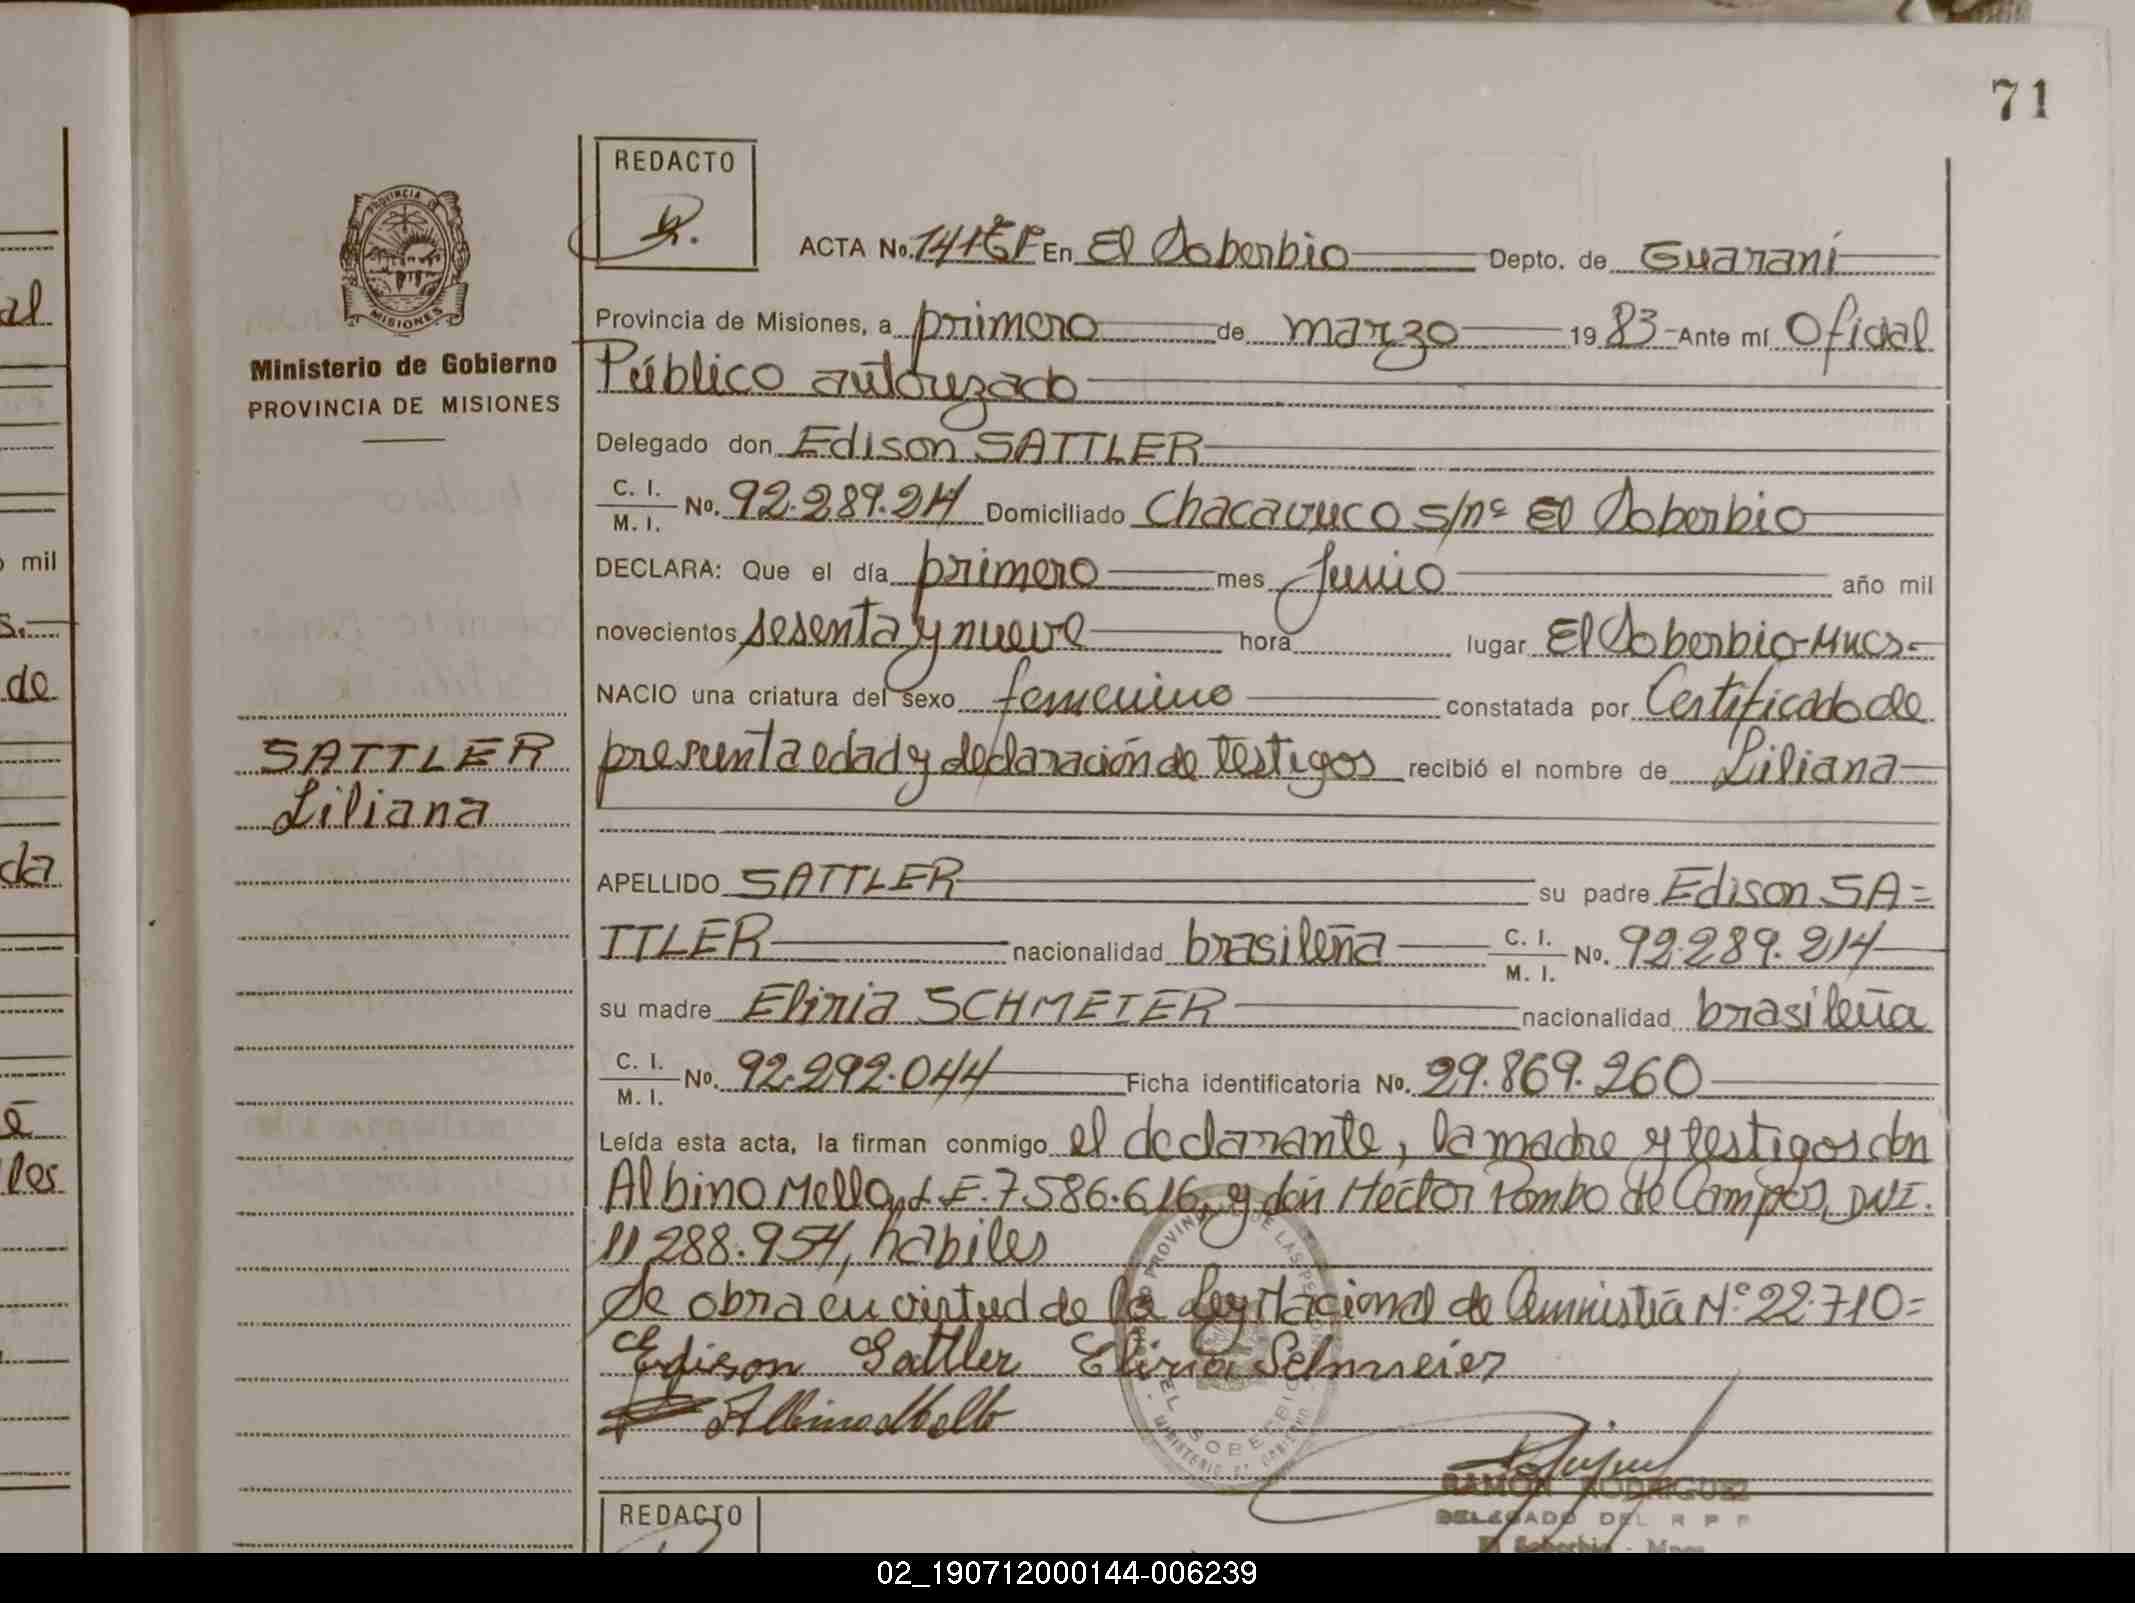 71
REDACTO
PROVINCIA DE
MISIONES
Ministerio de Gobierno
PROVINCIA DE MISIONES
ACTA No. 141 En El Soberbio Depto. de Guaraní
Provincia de Misiones, a primero de marzo 1983 Ante mí Oficial
Público autorizado
Delegado don Edison SATTLER
C. I.
M. I. No. 92.289.214 Domiciliado Chacavuco s/nº El Soberbio
DECLARA: Que el día primero mes Junio año mil
novecientos sesenta y nueve hora lugar El Soberbio-Mnes=
NACIO una criatura del sexo femenino constatada por Certificado de
presunta edad y declaración de testigos recibió el nombre de Liliana
SATTLER
Liliana
APELLIDO SATTLER su padre Edison SA=
TTLER nacionalidad brasileña C. I.
M. I. No. 92.289.214
su madre Eliria SCHMEIER nacionalidad brasileña
C. I.
M. I. No. 92.292.044 Ficha identificatoria No. 29.869.260
Leída esta acta, la firman conmigo el declarante, la madre y testigos don
Albino Mello, L.E. 7.586.616, y don Héctor Pombo de Campos, DNI.
11.288.954, hábiles
Se obra en virtud de la Ley Nacional de Amnistía Nº 22.710=
Edison Sattler Eliria Schmeier
Albino Mello
EL SOBERBIO
MINISTERIO DE GOBIERNO
RAMON RODRIGUEZ
DELEGADO DEL R P P
El Soberbio - Mnes
REDACTO
al
mil
s.
de
da
les
02_190712000144-006239